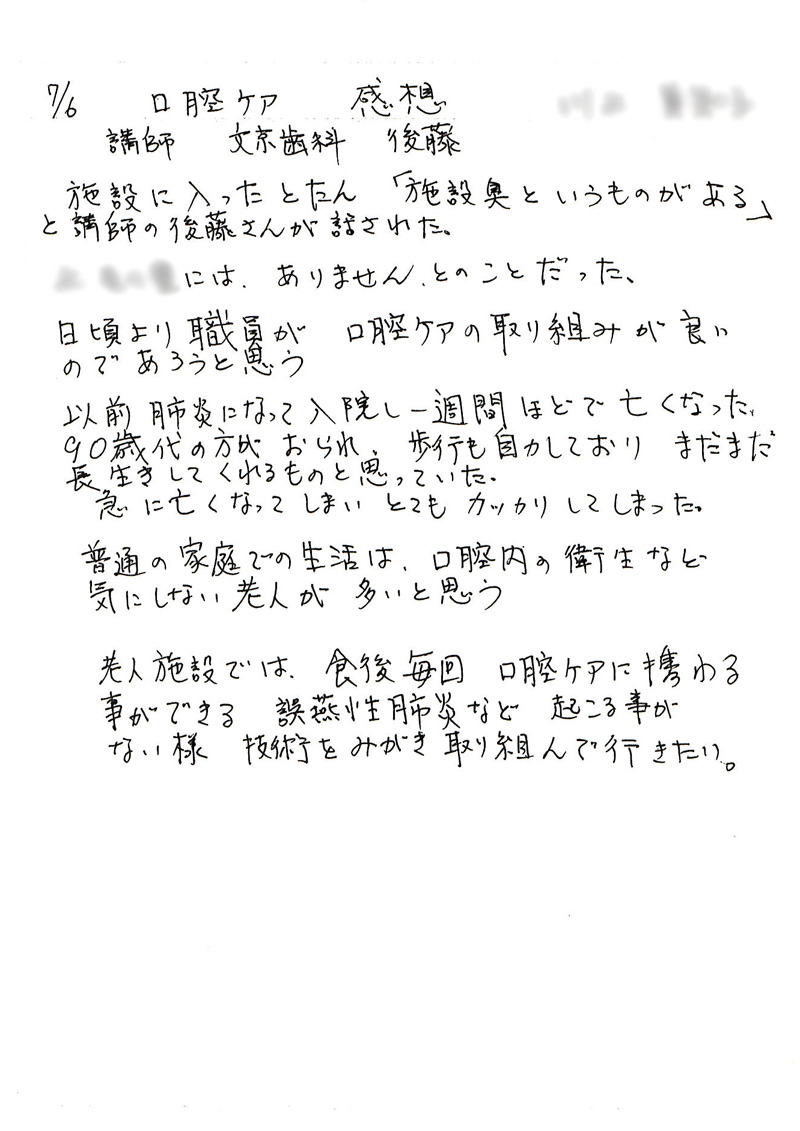 7/6 口腔ケア 感想
講師 文京歯科 後藤
施設に入ったとたん「施設臭というものがある」
と講師の後藤さんが話された。
には、ありません、とのことだった、
日頃より職員が 口腔ケアの取り組みが良い
のであろうと思う
以前 肺炎になって入院し一週間ほどで亡くなった、
90歳代の方がおられ、歩行も自力しており まだまだ
長生きしてくれるものと思っていた。
急に亡くなってしまい とても カッカリしてしまった。
普通の家庭での生活は、口腔内の衛生など
気にしない老人が 多いと思う
老人施設では、食後毎回 口腔ケアに携わる
事ができる 誤燕性肺炎など 起こる事が
ない様 技術をみがき取り組んで行きたい。